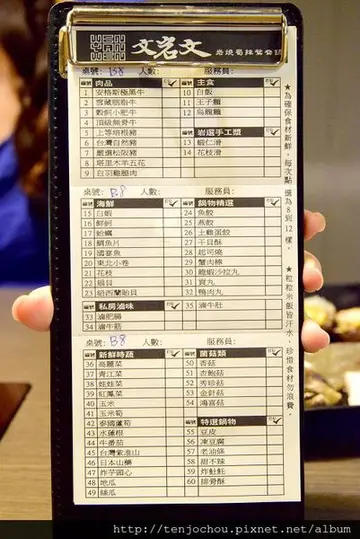 文岩文
桌號: B8 人數: 服務員:
肉品
1 安格斯極黑牛
2 雪藏胭脂牛
3 穀飼小肥牛
4 頂級無骨牛
5 上等培根豬
6 台灣自然豬
7 嚴選松阪豬
8 斑里木羊五花
9 白羽雞腿肉
主食
10 白飯
11 王子麵
12 烏龍麵
岩選手工漿
13 蝦仁滑
14 花枝滑
桌號: B8 人數: 服務員:
海鮮
15 白蝦
16 鮮蚵
17 蛤蠣
18 鯛魚片
19 國宴魚
20 東北小卷
21 花枝
22 鍋貝
23 紐西蘭貽貝
私房滷味
33 滷肥腸
34 滷牛筋
鍋物精選
24 魚餃
25 燕餃
26 土雞蛋餃
27 干貝酥
28 起司燒
29 蟹肉棒
30 龍蝦沙拉丸
31 貢丸
32 鴨肉丸
35 滷牛肚
桌號: B8 人數: 服務員:
新鮮時蔬
36 高麗菜
37 青江菜
38 娃娃菜
39 紅鳳菜
40 玉米
41 玉米筍
42 泰國蘆筍
43 水蓮根
44 牛番茄
45 台灣紫淮山
46 日本山藥
47 炸芋頭心
48 地瓜
49 絲瓜
菌菇類
50 香菇
51 杏鮑菇
52 秀珍菇
53 金針菇
54 鴻喜菇
特選鍋物
55 豆皮
56 凍豆腐
57 老油條
58 甜不辣
59 炸魷魚
60 排骨酥
★為確保食材新鮮，每次點選為8到12樣。
★粒粒米飯皆汗水，珍惜食材勿浪費。
http://tenjochou.pixnet.net/blog